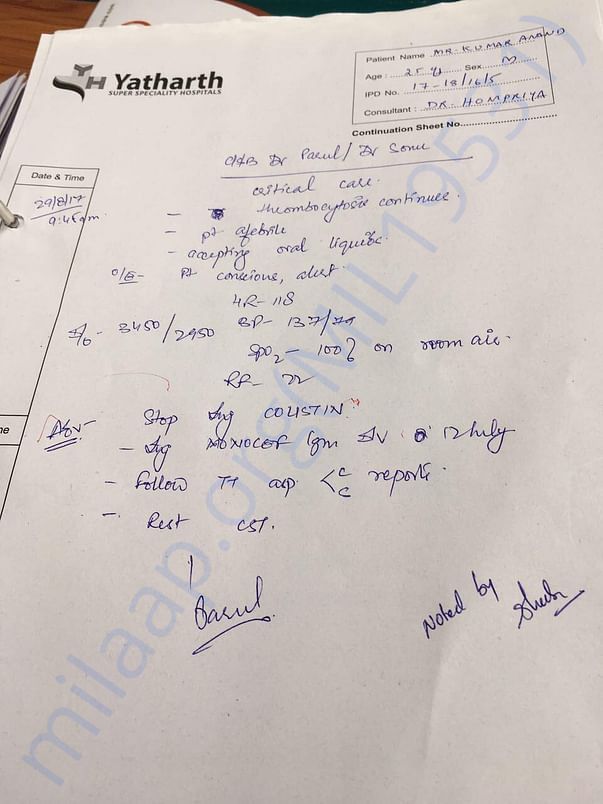 Yatharth
SUPER SPECIALITY HOSPITALS
Patient Name MR. KUMAR ANAND
Age : 25 y Sex M
IPD No. 17-18/16/5
Consultant : DR. HOMPRIYA
Continuation Sheet No.
Date & Time
C/S/B Dr Parul / Dr Sonu
critical care.
29/8/17
9:45am.
- thrombocytosis continues.
- pt afebrile
- accepting oral liquids.
O/E- pt conscious, alert.
HR- 118
I/O - 3450/2950 BP- 137/79
SPO2 - 100% on room air.
RR- 22
Adv- Stop Inj COLISTIN
- Inj MONOCEF 1gm IV 12 hrly
- Follow TT asp C C reports.
- Rest CST.
Parul
Noted by
milaap.org(MIL195371)